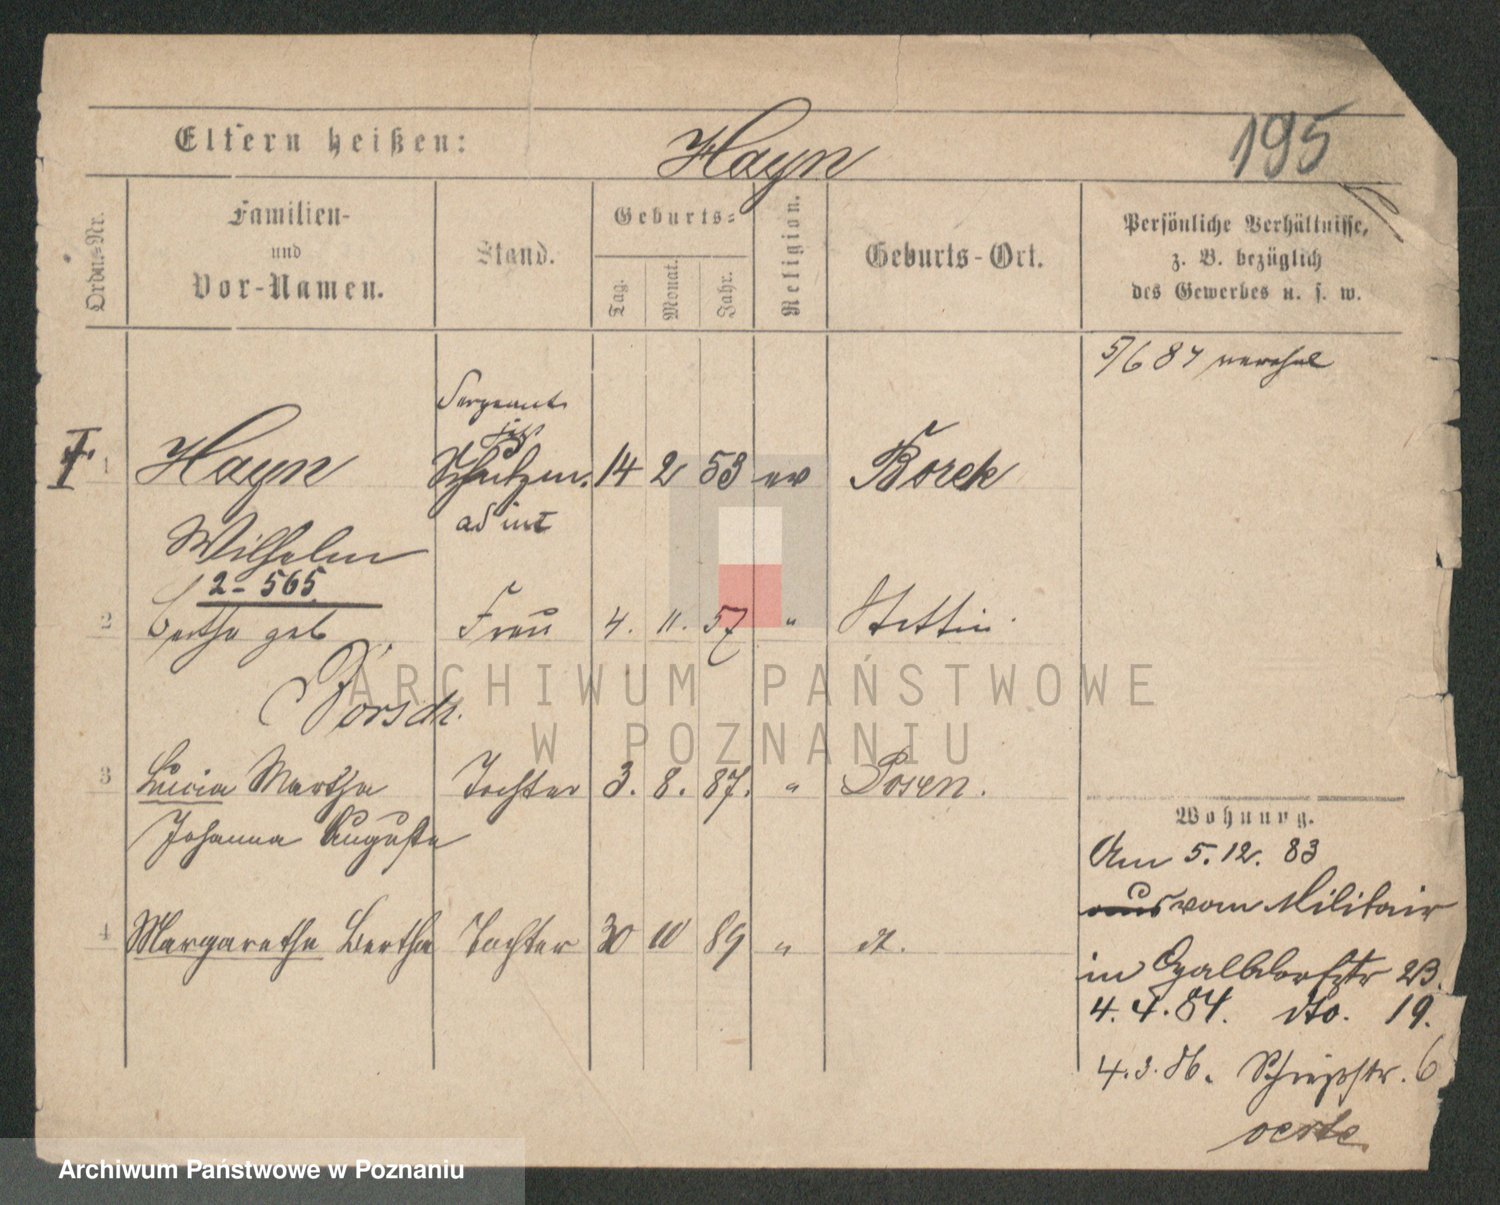 Eltern heißen: Hayn 195
Ordnu=Nr.
Familien-
und
Vor-Namen.
Stand.
Geburts=
Tag.
Monat.
Jahr.
Religion.
Geburts-Ort.
Persönliche Verhältnisse,
z. B. bezüglich
des Gewerbes u. s. w.
5/6 87
Sergeant
1 Hayn Schutzm. 14 2 53 ev Borek
ad int
Wilhelm
2 - 565
2 Bertha geb Frau 4. 11. 57 " Stettin.
Dorsch.
3 Lucia Martha Tochter 3. 8. 87. " Posen.
Johanna Auguste
4 Margarethe Bertha Tochter 30 10 89 " dt.
Wohnung.
Am 5. 12. 83
aus vom Militair
in 23.
4. 4. 84. dto. 19.
4. 3. 86. Schießstr. 6
ARCHIWUM PAŃSTWOWE
W POZNANIU
Archiwum Państwowe w Poznaniu